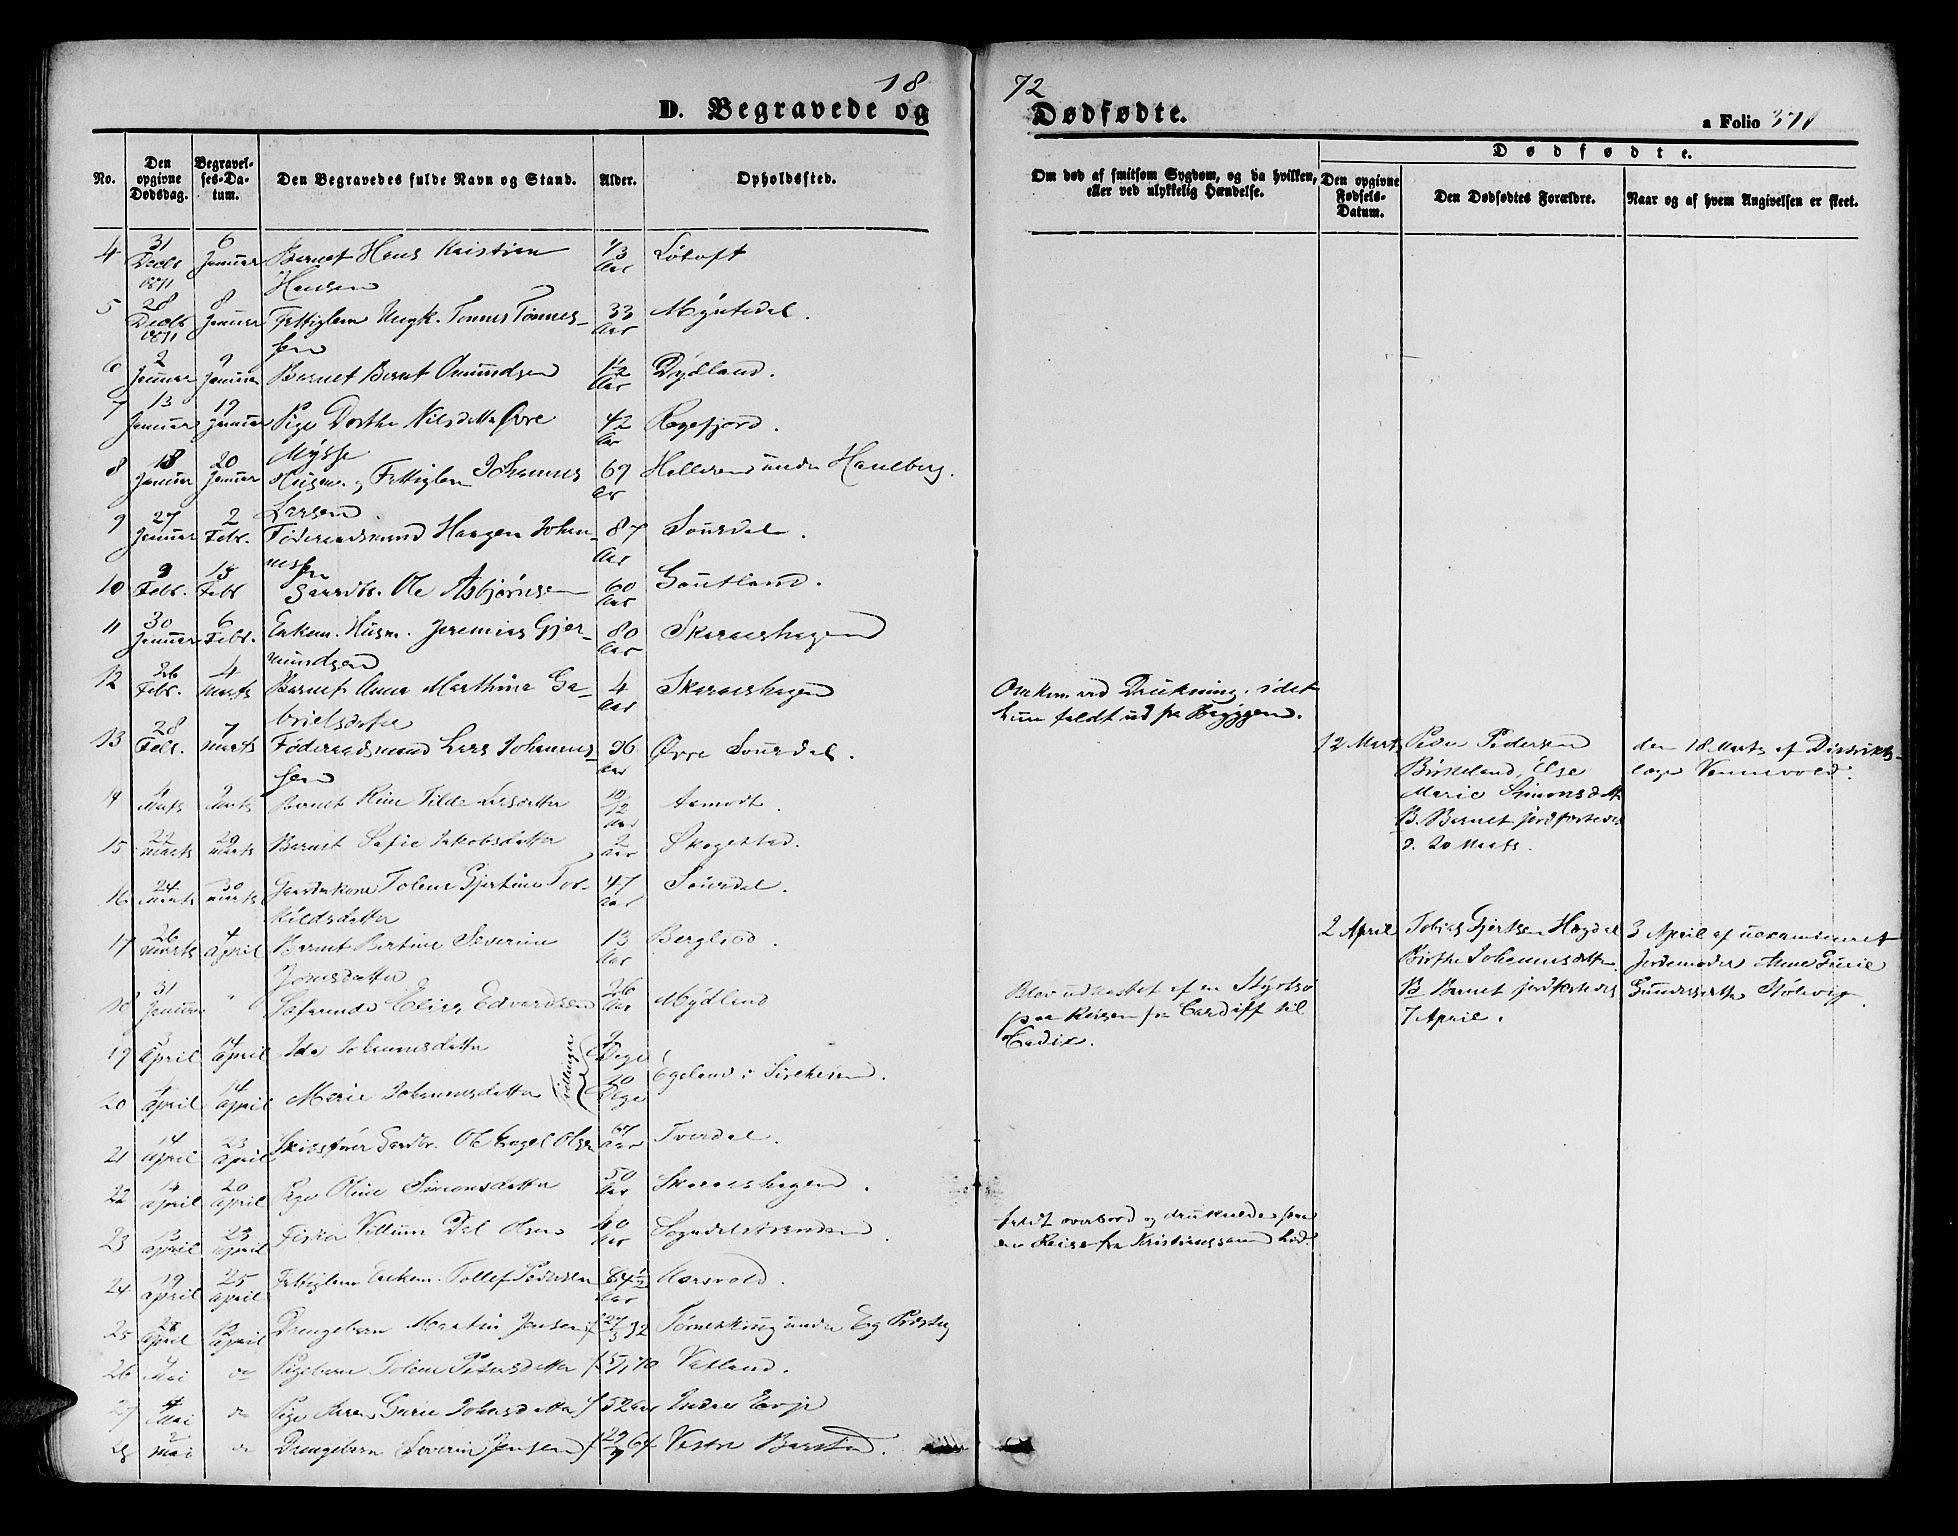 18
72
D. Begravede og
Dødfødte.
a Folio 371
No.
Den opgivne Dødsdag.
Begravel-
ses-Da-
tum.
Den Begravedes fulde Navn og Stand.
Alder.
Opholdssted.
Om død af smitsom Sygdom, og da hvilken,
eller ved ulykkelig Hændelse.
Dødfødte.
Den opgivne
Fødsels-
Datum.
Den Dødfødtes Forældre.
Naar og af hvem Angivelsen er skeet.
4 31 Decbr 1871 6 Januar Barnet Hans Kristian
Hansen 1/3 Aar Løtoft
5 28 Decbr 1871 8 Januar Fattiglem Ungk. Tønnes Tønnes-
sen 33 Aar Myntedal.
6 2 Januar 9 Januar Barnet Bernt Omundsen 1/2 Aar Dydland.
7 13 Januar 19 Januar Pige Dorthe Nilsdatter Øvre
Mysse 42 Aar Rægefjord.
8 18 Januar 20 Januar Husm. og Fattiglem Johannes
Larsen 69 Aar Helleren under Haueberg.
9 27 Januar 2 Febr. Føderaadsmand Haagen Johan-
nessen 87 Aar Sourdal.
10 9 Febr. 15 Febr Gaardbr. Ole Asbjørnsen 60 Aar Goutland.
11 30 Januar 6 Febr. Enkem. Husm. Jeremias Gjer-
mundsen 80 Aar Skaraashagen
12 26 Febr. 4 Marts Barnet Anna Marthine Ga-
brielsdatter 4 Aar Skaraashagen Omkom ved Drukning, idet
hun faldt ud fra Bryggen.
13 28 Febr. 7 Marts Føderaadsmand Lars Johannes-
sen 96 Aar Øvre Sourdal.
12 Marts Peder Pedersen
Birkeland, Else
Marie Simonsdatter
B. Barnet jordfæstedes
d. 20 Marts.
den 18 Marts af Distrikts-
læge Vennevold.
14 4 Marts 9 Marts Barnet Rine Tilda Larsdatter 10/12 Aar Aamodt.
15 22 Marts 29 Marts Barnet Sofie Jakobsdatter 2 Aar Skogestad.
16 24 Marts 30 Marts Gaardkone Tolene Gjertine Tor-
kildsdatter 47 Aar Sourdal.
17 26 Marts 4 April Barnet Bertine Severine
Jonsdatter 13 Aar Berglyd.
2 April Tobias Gjertsen Hægdal
Birthe Johannesdatter
B Barnet jordfæstedes
7 April.
3 April af uexamineret
Jordemoder Anne Gurie
Gundersdatter Stølevig.
18 31 Januar " Søfarende Elias Edvardsen 26 Aar Mydland Blev udkastet af en Styrtsø
paa Reisen fra Cardiff til
Cadix.
19 3 April 14 April Ida Johannesdatter 9 Dage
Tvillinger
Egeland i Sirekeren.
20 4 April 14 April Marie Johannesdatter 10 Dage
21 14 April 23 April Skydsfører Gardbr. Ole Engel Olsen 67 Aar Tverdal.
22 14 April 20 April Pige Oline Simonsdatter 50 Aar Skaraashagen.
23 13 April 23 April Fisker Villum Dal Olsen 40 Aar Sogndalstranden. Faldt overbord og druknede paa
en Reise fra Kristianssand hid.
24 19 April 25 April Fattiglem Enkem. Tollef Pedersen 84 1/2 Aar Aarsvold.
25 28 April 12 April Drengebarn Martin Jensen f 27/3 32 Tørnekking under Eg
26 4 Mai do Pigebarn Tolene Petersdatter f 5/1 70 Vatland.
27 4 Mai do Pige Karen Gurie Johnsdatter f 52 Aar Indre Evje
28 2 Mai do Drengebarn Severin Jensen f 29/7 64 Vestre Barstad.